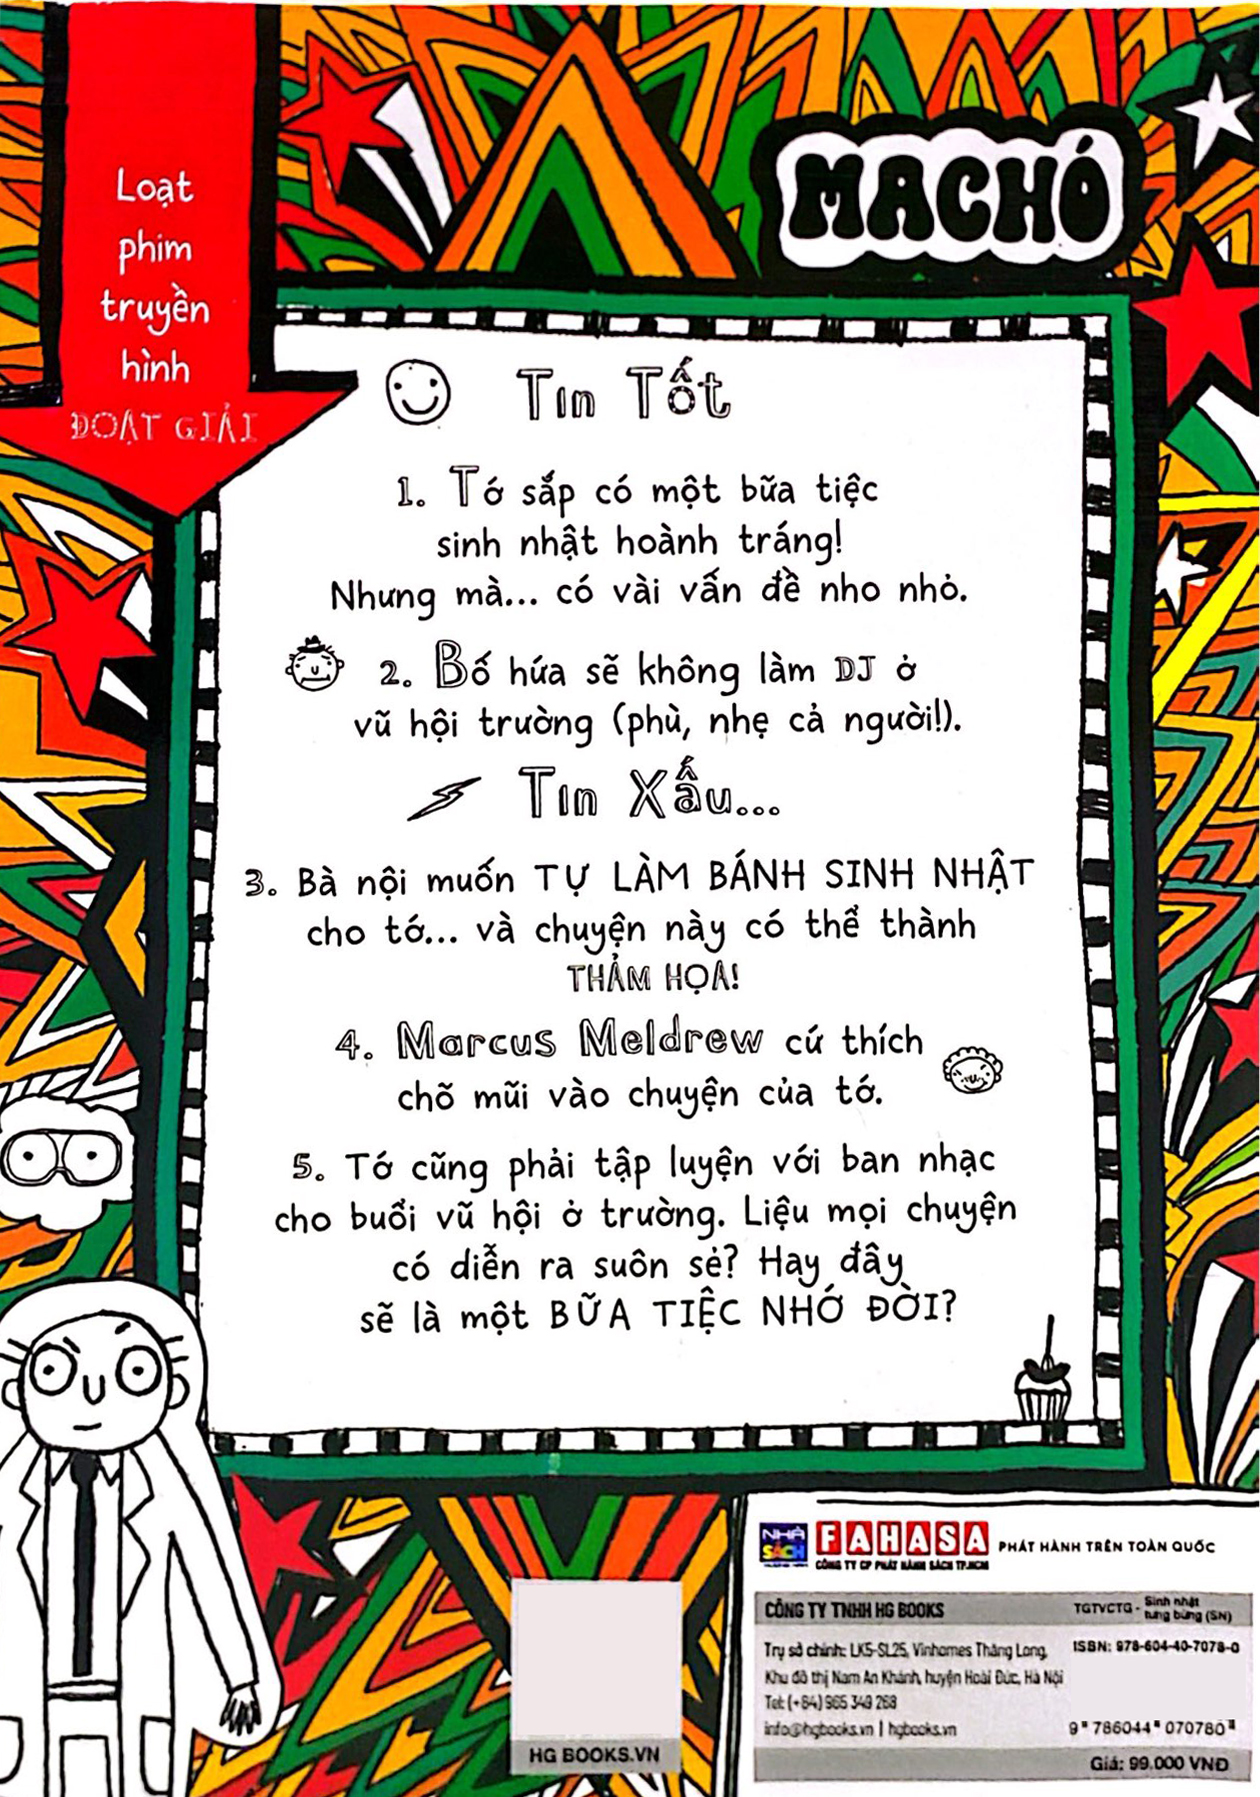 Loạt
phim
truyền
hình
ĐOẠT GIẢI
MACHÓ
Tin Tốt
1. Tớ sắp có một bữa tiệc
sinh nhật hoành tráng!
Nhưng mà... có vài vấn đề nho nhỏ.
2. Bố hứa sẽ không làm DJ ở
vũ hội trường (phù, nhẹ cả người!).
Tin Xấu...
3. Bà nội muốn TỰ LÀM BÁNH SINH NHẬT
cho tớ... và chuyện này có thể thành
THẢM HỌA!
4. Marcus Meldrew cứ thích
chõ mũi vào chuyện của tớ.
5. Tớ cũng phải tập luyện với ban nhạc
cho buổi vũ hội ở trường. Liệu mọi chuyện
có diễn ra suôn sẻ? Hay đây
sẽ là một BỮA TIỆC NHỚ ĐỜI?
NHÀ SÁCH FAHASA PHÁT HÀNH TRÊN TOÀN QUỐC
CÔNG TY CP PHÁT HÀNH SÁCH TP.HCM
CÔNG TY TNHH HG BOOKS
TGTVCTG - Sinh nhật
tưng bừng (SN)
Trụ sở chính: LK5-SL25, Vinhomes Thăng Long,
Khu đô thị Nam An Khánh, huyện Hoài Đức, Hà Nội
Tel: (+84) 965 349 268
info@hgbooks.vn | hgbooks.vn
ISBN: 978-604-40-7078-0
9 786044 070780
Giá: 99.000 VNĐ
HG BOOKS.VN